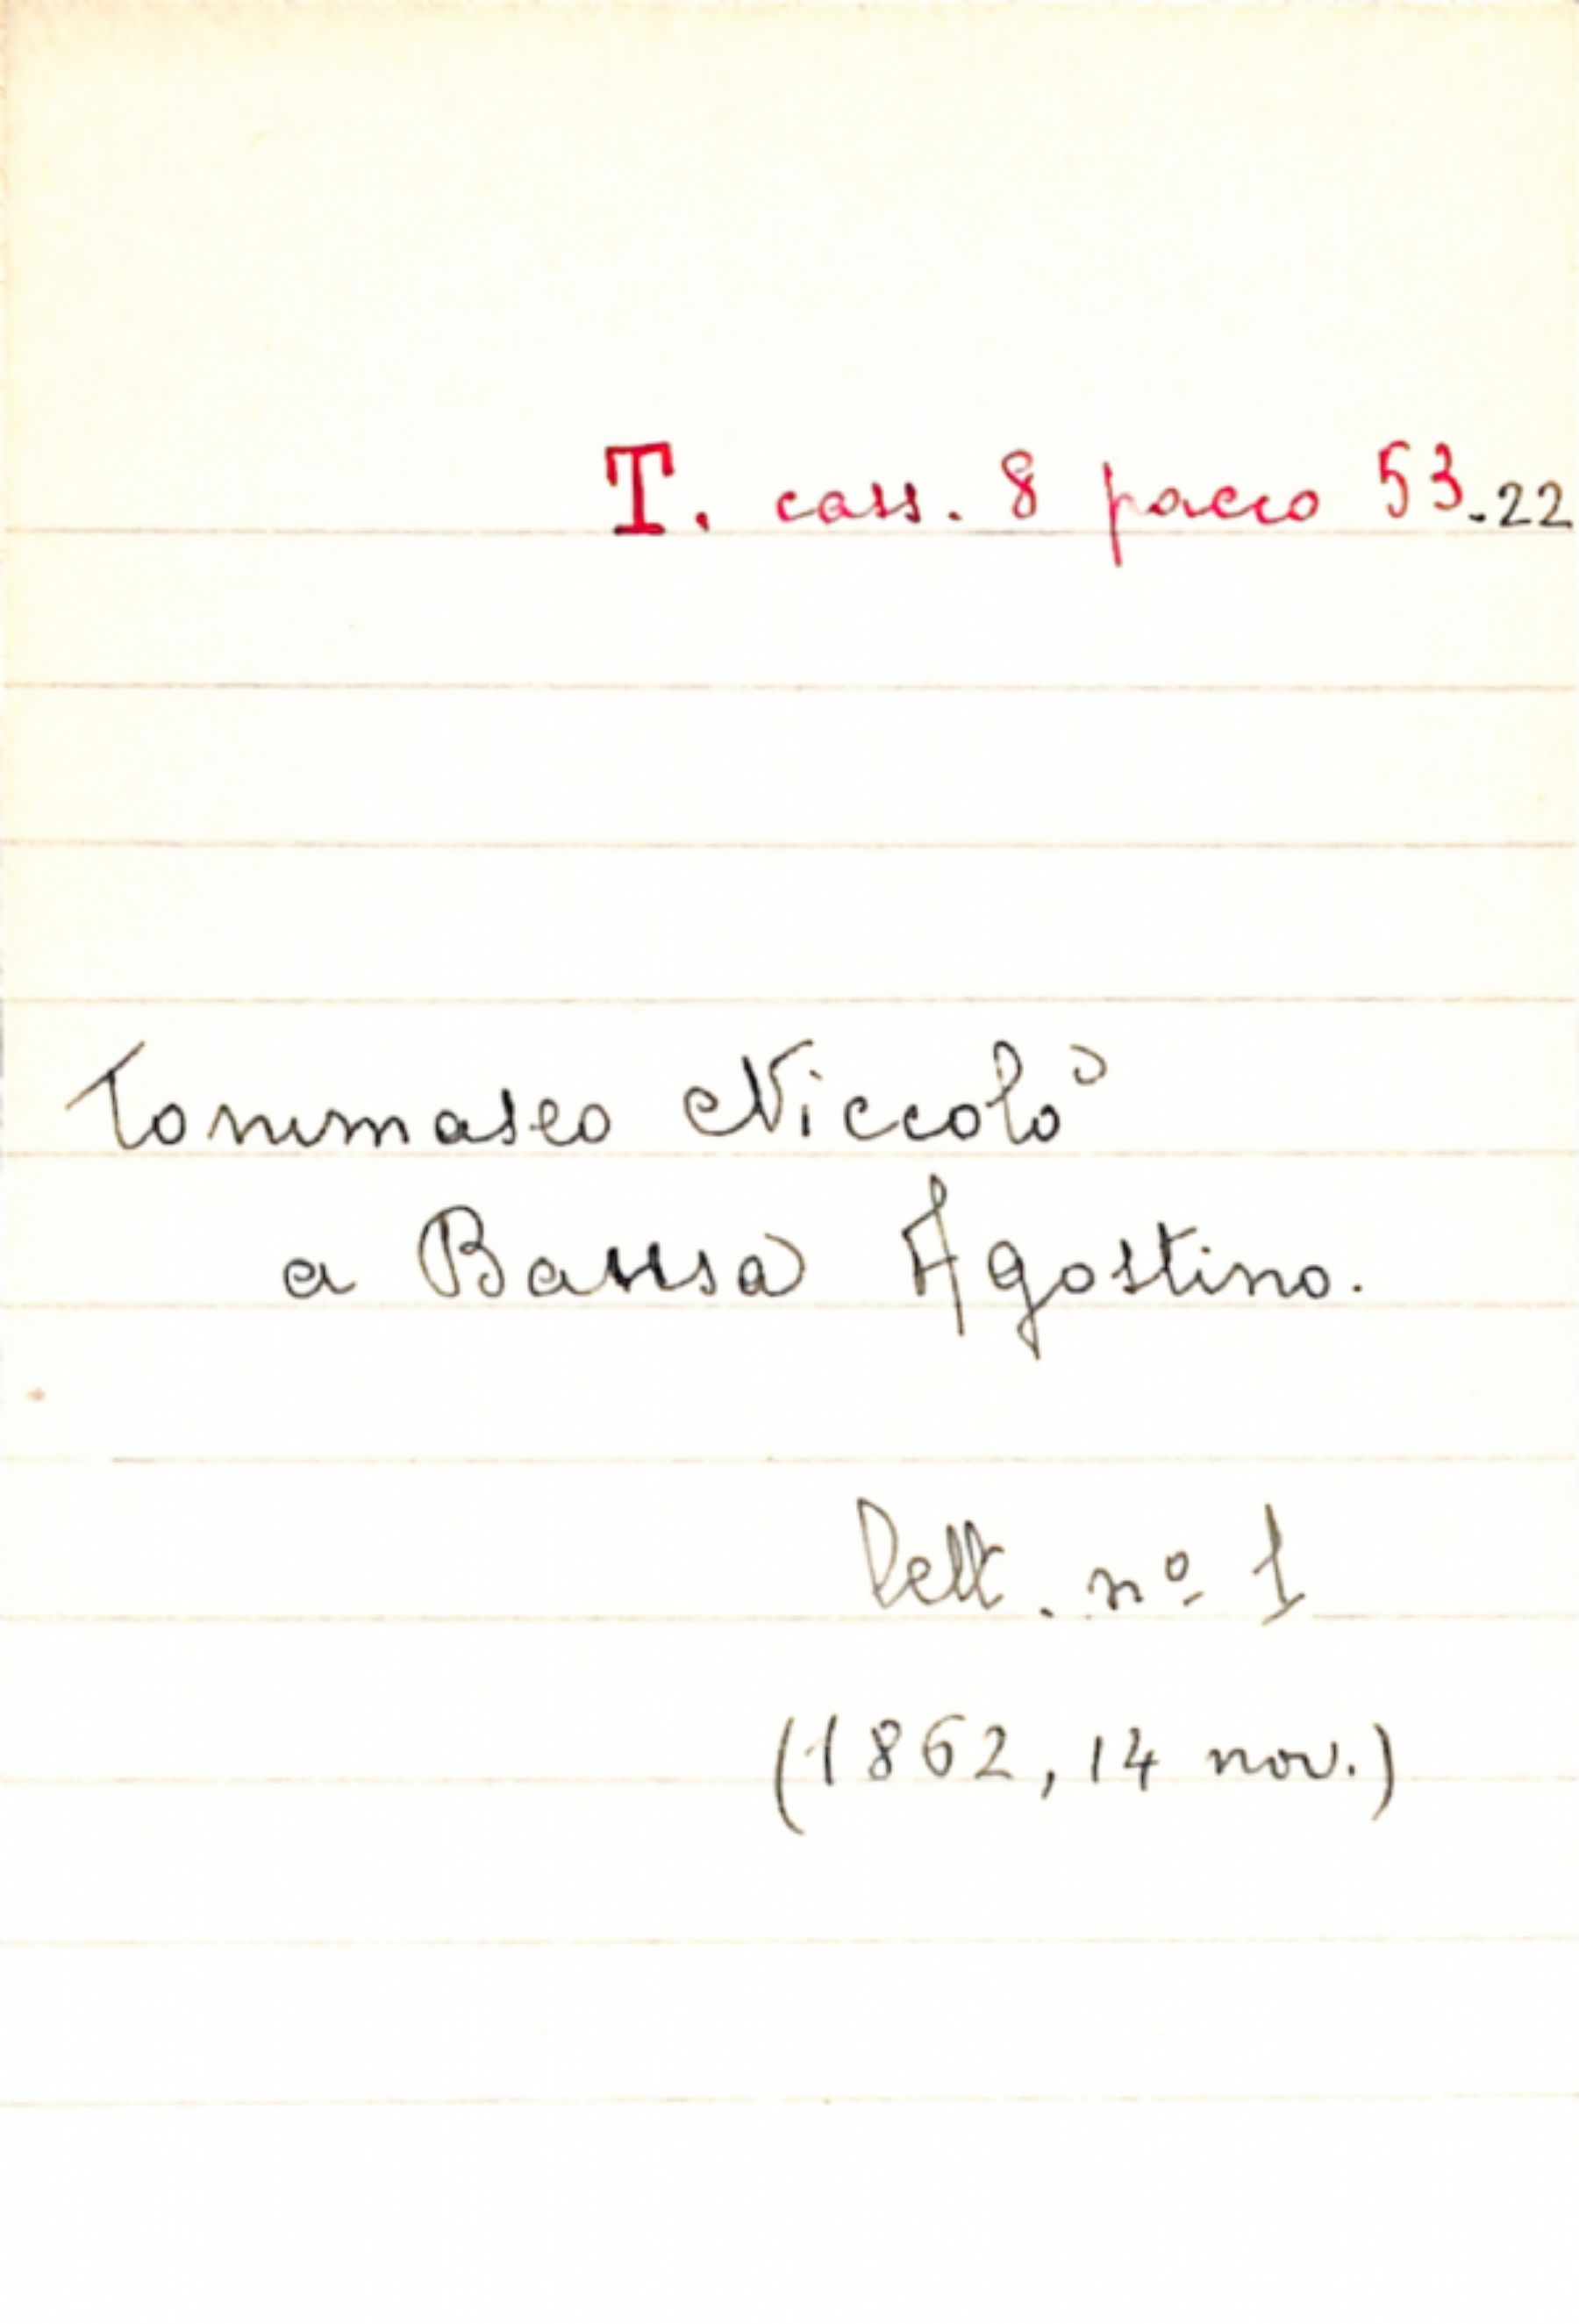 T. cass. 8 pacco 53.22
Tommaseo Niccolò
a Bausa Agostino.
Lett. nº 1
(1862, 14 nov.)